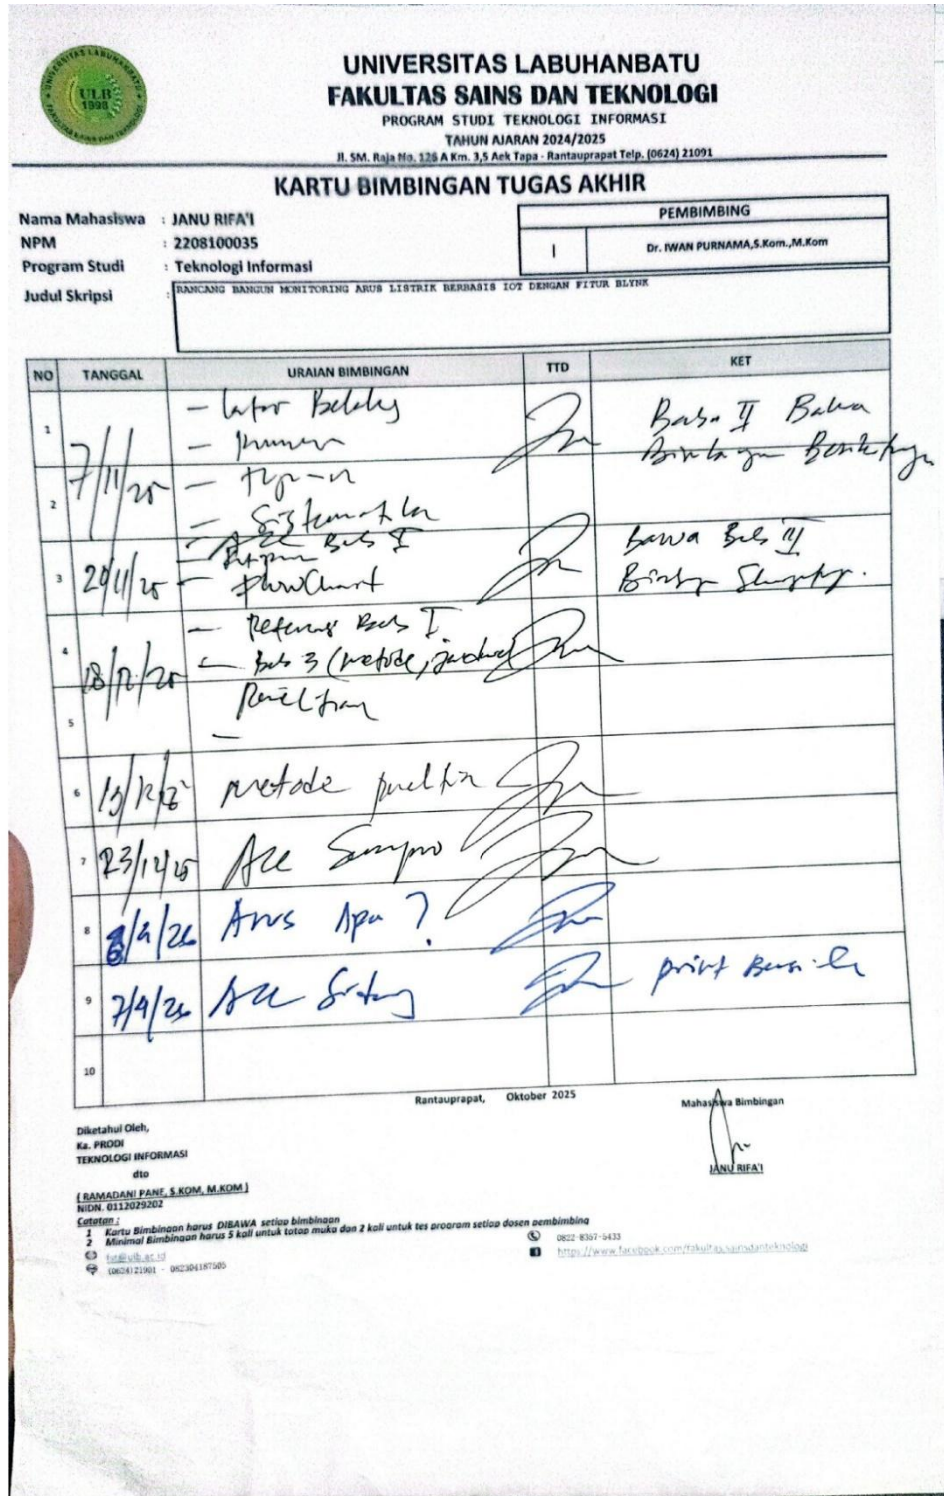 UNIVERSITAS LABUHANBATU
ULB
1998
UNIVERSITAS LABUHANBATU
FAKULTAS SAINS DAN TEKNOLOGI
PROGRAM STUDI TEKNOLOGI INFORMASI
TAHUN AJARAN 2024/2025
Jl. SM. Raja No. 126 A Km. 3,5 Aek Tapa - Rantauprapat Telp. (0624) 21091
KARTU BIMBINGAN TUGAS AKHIR
Nama Mahasiswa : JANU RIFA'I
NPM : 2208100035
Program Studi : Teknologi Informasi
PEMBIMBING
I Dr. IWAN PURNAMA,S.Kom.,M.Kom
Judul Skripsi : RANCANG BANGUN MONITORING ARUS LISTRIK BERBASIS IOT DENGAN FITUR BLYNK
NO TANGGAL URAIAN BIMBINGAN TTD KET
1 - Latar Belakg Bab II Bawa
7/11/25
2
- Sistematika
Acc Bab I
3 - FlowChart Bawa Bab III
4 - Referensi Bab I
18/12/25 - Bab 3 (metode, jadwal
5 Penelitian
6 metode
7 23/12/25 Acc Sempro
8 Arus Apa ?
9 7/4/26 Acc Sidang print
10
Rantauprapat, Oktober 2025
Diketahui Oleh,
Ka. PRODI
TEKNOLOGI INFORMASI
dto
( RAMADANI PANE, S.KOM, M.KOM )
NIDN. 0112029202
Mahasiswa Bimbingan
JANU RIFA'I
Catatan :
1 Kartu Bimbingan harus DIBAWA setiap bimbingan
2 Minimal Bimbingan harus 5 kali untuk tatap muka dan 2 kali untuk tes program setiap dosen pembimbing
fst@ulb.ac.id
(0624)21901 - 082304187505
0822-8357-5433
https://www.facebook.com/fakultas.sainsdanteknologi